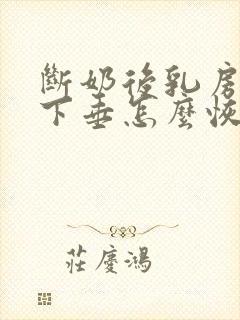 斷奶後乳房
下垂怎麼恢
莊慶鴻